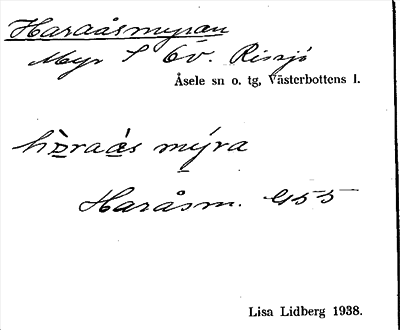 Haraåsmyran
Myr S Öv. Rissjö
Åsele sn o. tg, Västerbottens l.
hàraås mýra
Haråsm. G55
Lisa Lidberg 1938.